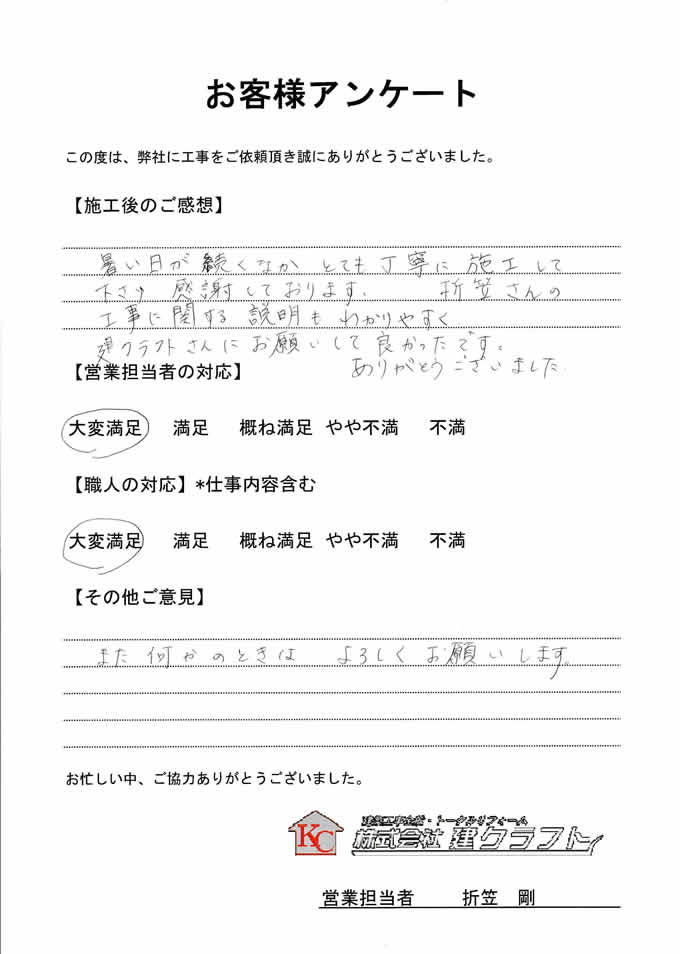 お客様アンケート
この度は、弊社に工事をご依頼頂き誠にありがとうございました。
【施工後のご感想】
暑い日が続くなか とても丁寧に施工して
下さり 感謝しております. 折笠さんの
工事に関する説明もわかりやすく
建クラフトさんにお願いして良かったです。
ありがとうございました.
【営業担当者の対応】
大変満足 満足 概ね満足 やや不満 不満
【職人の対応】*仕事内容含む
大変満足 満足 概ね満足 やや不満 不満
【その他ご意見】
また何かのときは よろしくお願いします。
お忙しい中、ご協力ありがとうございました。
KC
建築工事全般・トータルリフォーム
株式会社 建クラフト
営業担当者 折笠 剛